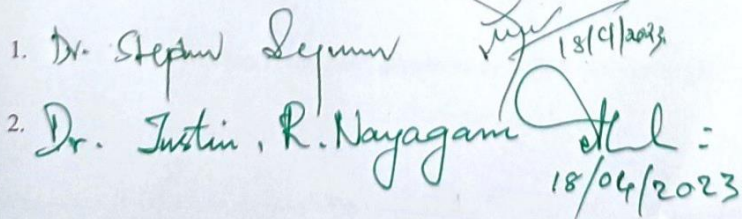 1. Dr. Stephen 18/4/2023
2. Dr. Justin. R. Nayagam
18/04/2023